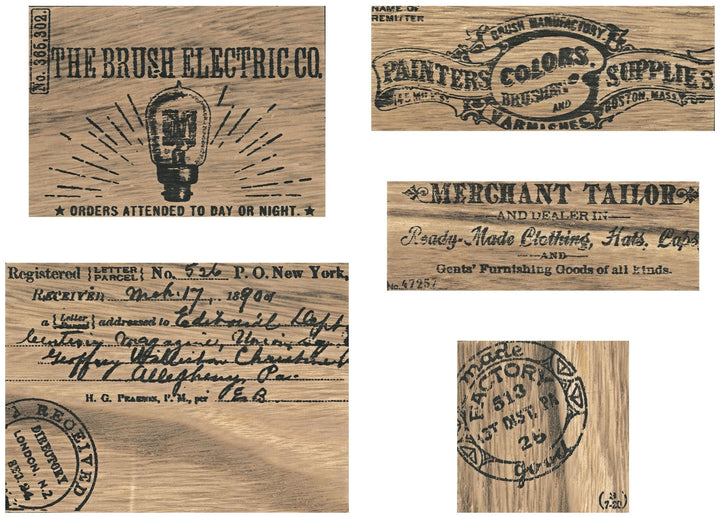 No. 365,302.
THE BRUSH ELECTRIC CO.
★ ORDERS ATTENDED TO DAY OR NIGHT. ★
NAME OF
REMITTER
BRUSH MANUFACTORY.
PAINTERS COLORS. SUPPLIES
BRUSHES
AND
VARNISHES
BOSTON, MASS.
MERCHANT TAILOR
AND DEALER IN
Ready-Made Clothing, Hats, Caps
AND
Gents' Furnishing Goods of all kinds.
No. 47257
Registered {LETTER PARCEL} No. 526 P. O. New York,
RECEIVED Mch. 17, 1890
a {Letter Parcel} addressed to Editorial Dept,
Century Magazine, Union Sq.
Geoffry Williston Christine
Allegheny, Pa.
H. G. PEARSON, P. M., per E.B.
RECEIVED
DIRECTORY
LONDON. N.Z
DEC. 24
made
FACTORY
513
1ST DIST. PA
25
good
(7-20)